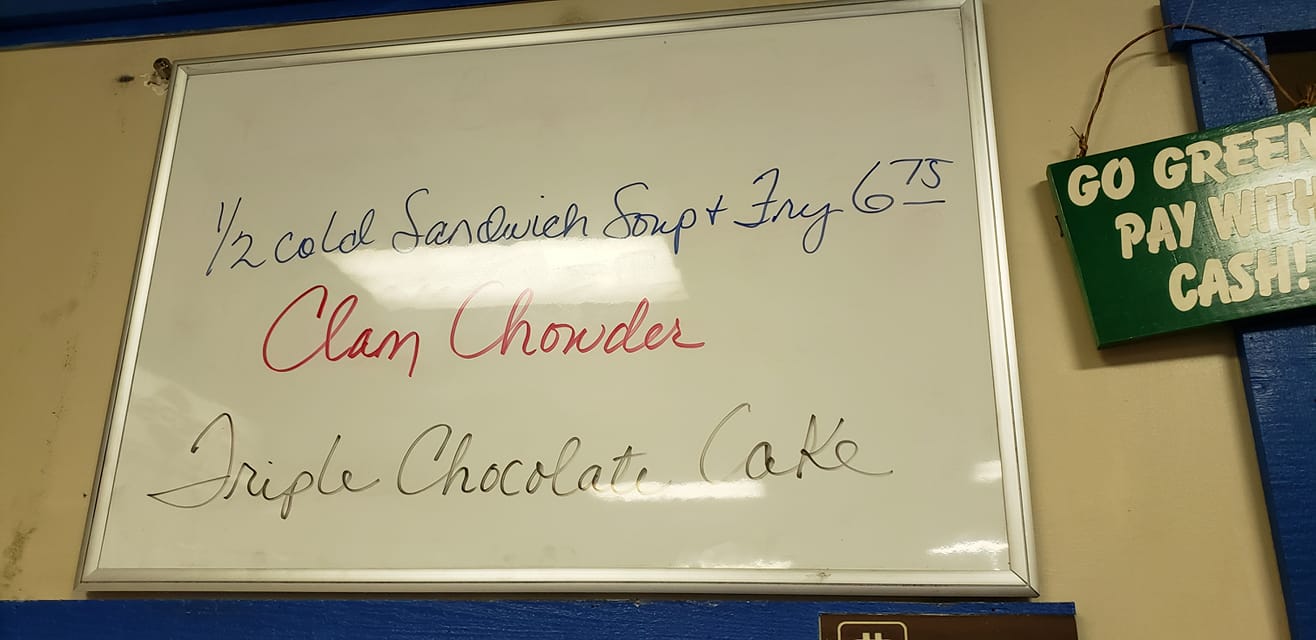 1/2 cold Sandwich Soup + Fry 6 75
Clam Chowder
Triple Chocolate Cake
GO GREEN
PAY WITH
CASH!
#